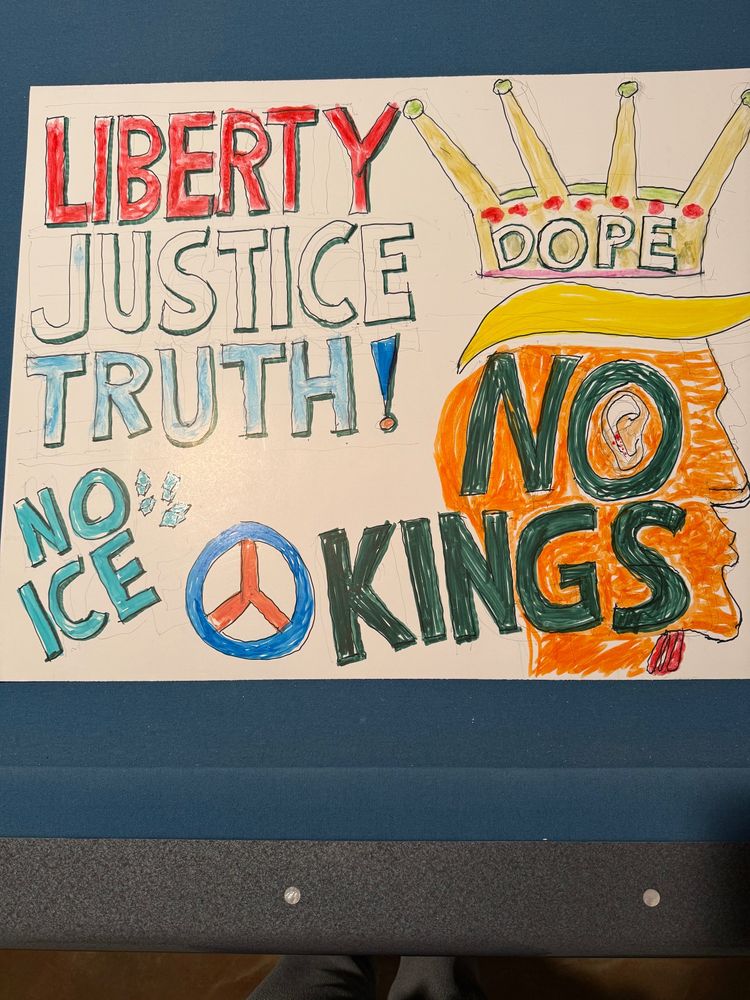 LIBERTY
JUSTICE
TRUTH!
NO
ICE
DOPE
NO
KINGS